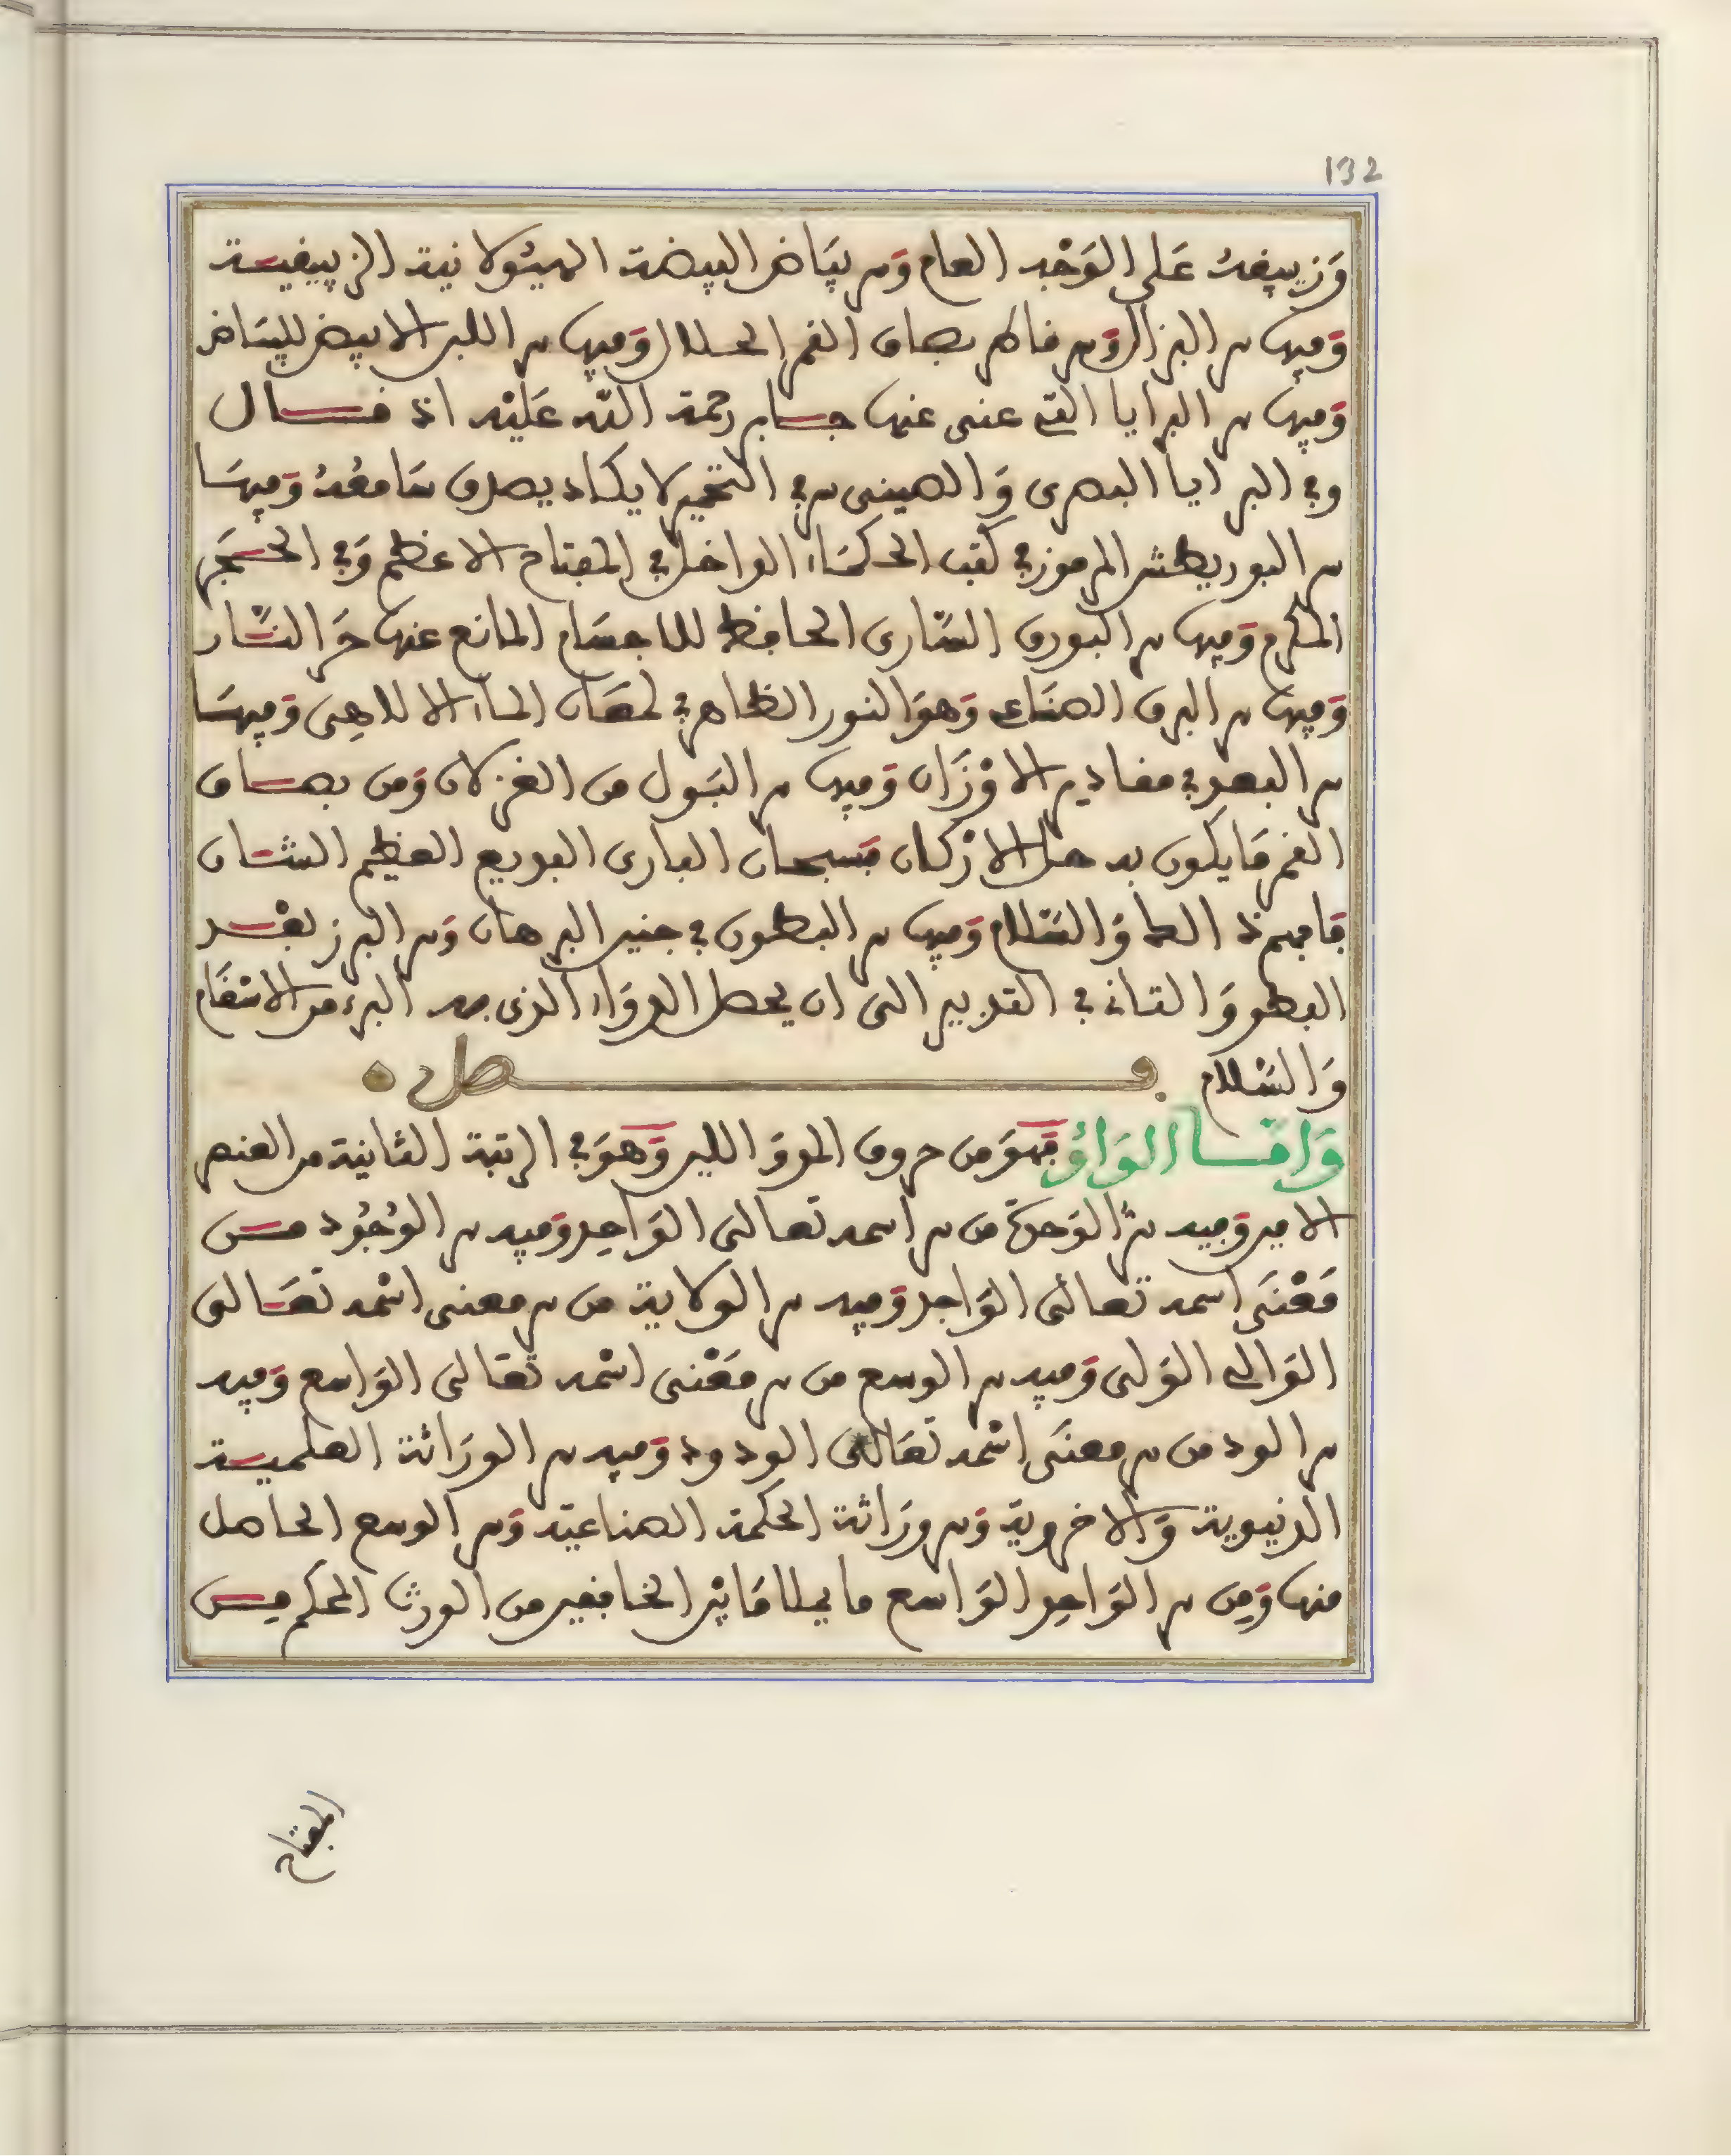 132
وَزيبقه عَلى الوَجْه العام وَسر بيَاض البيضة الهيُولانية الزيبقيـة
وَفيها سر البزاق وَسر قاطر بصاق القمر الحلال وَفيها سر اللبن الابيض للبيَاض
وَفيها سر البرايا التي عنى عنها جـابر رحمة الله عَليْه اذ قـال
وفي البرايا البصرى وَالصينى سر في التخمير لا يكاد يصدق سَامعُهُ وَفيهَا
سر البوريطش المرموز في كتب الحكمَاء الداخل في المفتاح الاعظم وَفي الحـجَر
المكرم وَفيها سر البورق السَّارى الحافظ للاجسَام المانع عنها حَرَّ النَّـار
وَفيها سر البرق الصنَاعي وَهوَ النور الظاهر في لمعَان الماء الالاهى وَفيهَا
سر البعد في مقادير الاوْزَان وَفيها سر البَول من الغزلان وَمن بصـاق
القمر مَا يكون به حل الارْكان فسبحان البارى البديع العظيم الشـان
فافهم ذا العطا وَالسَّلام وَفيها سر البطون في جنين البرهان وَسر البرز بعْـد
البطو وَالتانى في التدبير الى ان يحصل الدوَاء الذى به البرء من الاسْقَام
وَالسَّلام . فـصل
وَامـا الوَاوُ فهوَ من حروف المد وَاللين وَهوَ في الرتبة الثانية من العنصر
الامير وَفيه سرُّ الوَحدة من سر اسمه تعالى الوَاحِد وَفيه سر الوُجُود مـن
مَعْنَى اسمه تعالى الوَاجد وَفيه سر الولاية من سر معنى اسْمه تعَـالى
الوَالى الوَلى وَفيه سر الوسع من سر مَعْنى اسْمه تعَالى الوَاسع وَفيه
سر الود من سر معنَى اسْمه تعَالى الودود وَفيه سر الورَاثة العلميـة
الدنيوية وَالاخروية وَسر ورَاثة الحكمة الصناعية وَسر الوسع الحاصل
منها وَمِن سر الوَاحِد الوَاسع ما يملا مَا بيْن الخافقين من الورث المحكم مِـن
المفتاح